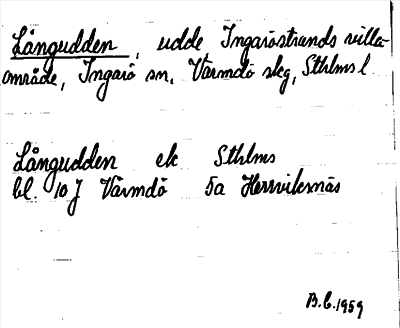 Långudden, udde, Ingaröstrands villa-
område, Ingarö sn, Värmdö skg, Sthlms l
Långudden ek Sthlms
bl. 10J Värmdö 5a Herrviksnäs
B.C. 1959